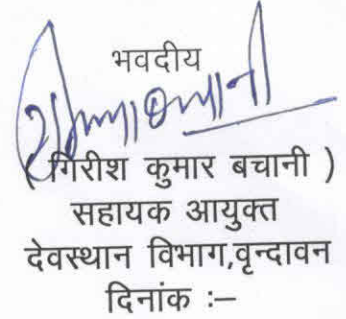 भवदीय
( गिरीश कुमार बचानी )
सहायक आयुक्त
देवस्थान विभाग,वृन्दावन
दिनांक :–